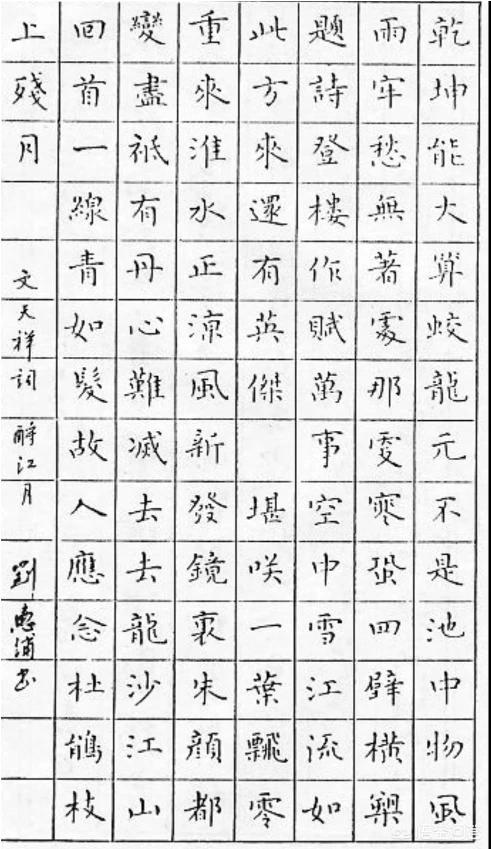 乾坤能大算蛟龍元不是池中物風
雨牢愁無著處那更寒蛩四壁橫槊
題詩登樓作賦萬事空中雪江流如
此方來還有英傑 堪咲一葉飄零
重來淮水正涼風新發鏡裏朱顏都
變盡祗有丹心難滅去去龍沙江山
回首一線青如髮故人應念杜鵑枝
上殘月 文天祥詞 酹江月 劉惠浦書